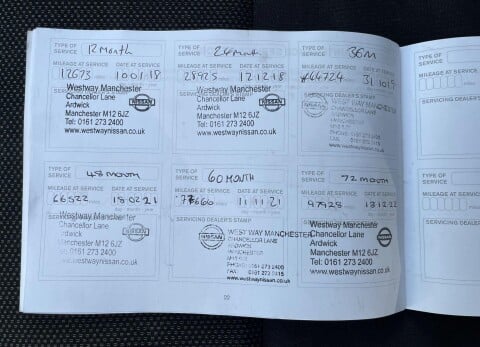 TYPE OF SERVICE 12 Month
MILEAGE AT SERVICE DATE AT SERVICE
12673 10 01 18
Westway Manchester
Chancellor Lane
Ardwick
Manchester M12 6JZ
Tel: 0161 273 2400
www.westwaynissan.co.uk
NISSAN
TYPE OF SERVICE 24 Mont
MILEAGE AT SERVICE DATE AT SERVICE
28925 12 12 18
Westway Manchester
Chancellor Lane
Ardwick
Manchester M12 6JZ
Tel: 0161 273 2400
www.westwaynissan.co.uk
NISSAN
TYPE OF SERVICE 36M
MILEAGE AT SERVICE DATE AT SERVICE
44724
SERVICING DEALER'S STAMP
WESTWAY MANCHESTER
CHANCELLOR LANE
ARDWICK
MANCHESTER
NISSAN
TYPE OF SERVICE 48 MONTH
MILEAGE AT SERVICE DATE AT SERVICE
66522 18 02 21
Westway Manchester
Chancellor Lane
Ardwick
Manchester M12 6JZ
Tel: 0161 273 2400
www.westwaynissan.co.uk
NISSAN
TYPE OF SERVICE 60 MONTH
MILEAGE AT SERVICE DATE AT SERVICE
77660 11 11 21
SERVICING DEALER'S STAMP
NISSAN
WESTWAY MANCHESTER
CHANCELLOR LANE
ARDWICK
MANCHESTER
PHONE: 0161 273 2400
www.westwaynissan.co.uk
TYPE OF SERVICE 72 MONTH
MILEAGE AT SERVICE DATE AT SERVICE
97928 18 12 22
Westway Manchester
Chancellor Lane
Ardwick
Manchester M12 6JZ
Tel: 0161 273 2400
www.westwaynissan.co.uk
NISSAN
TYPE OF SERVICE
MILEAGE AT SERVICE
SERVICING DEALER'S
TYPE OF SERVICE
MILEAGE AT SERVICE
SERVICING DEALER'S